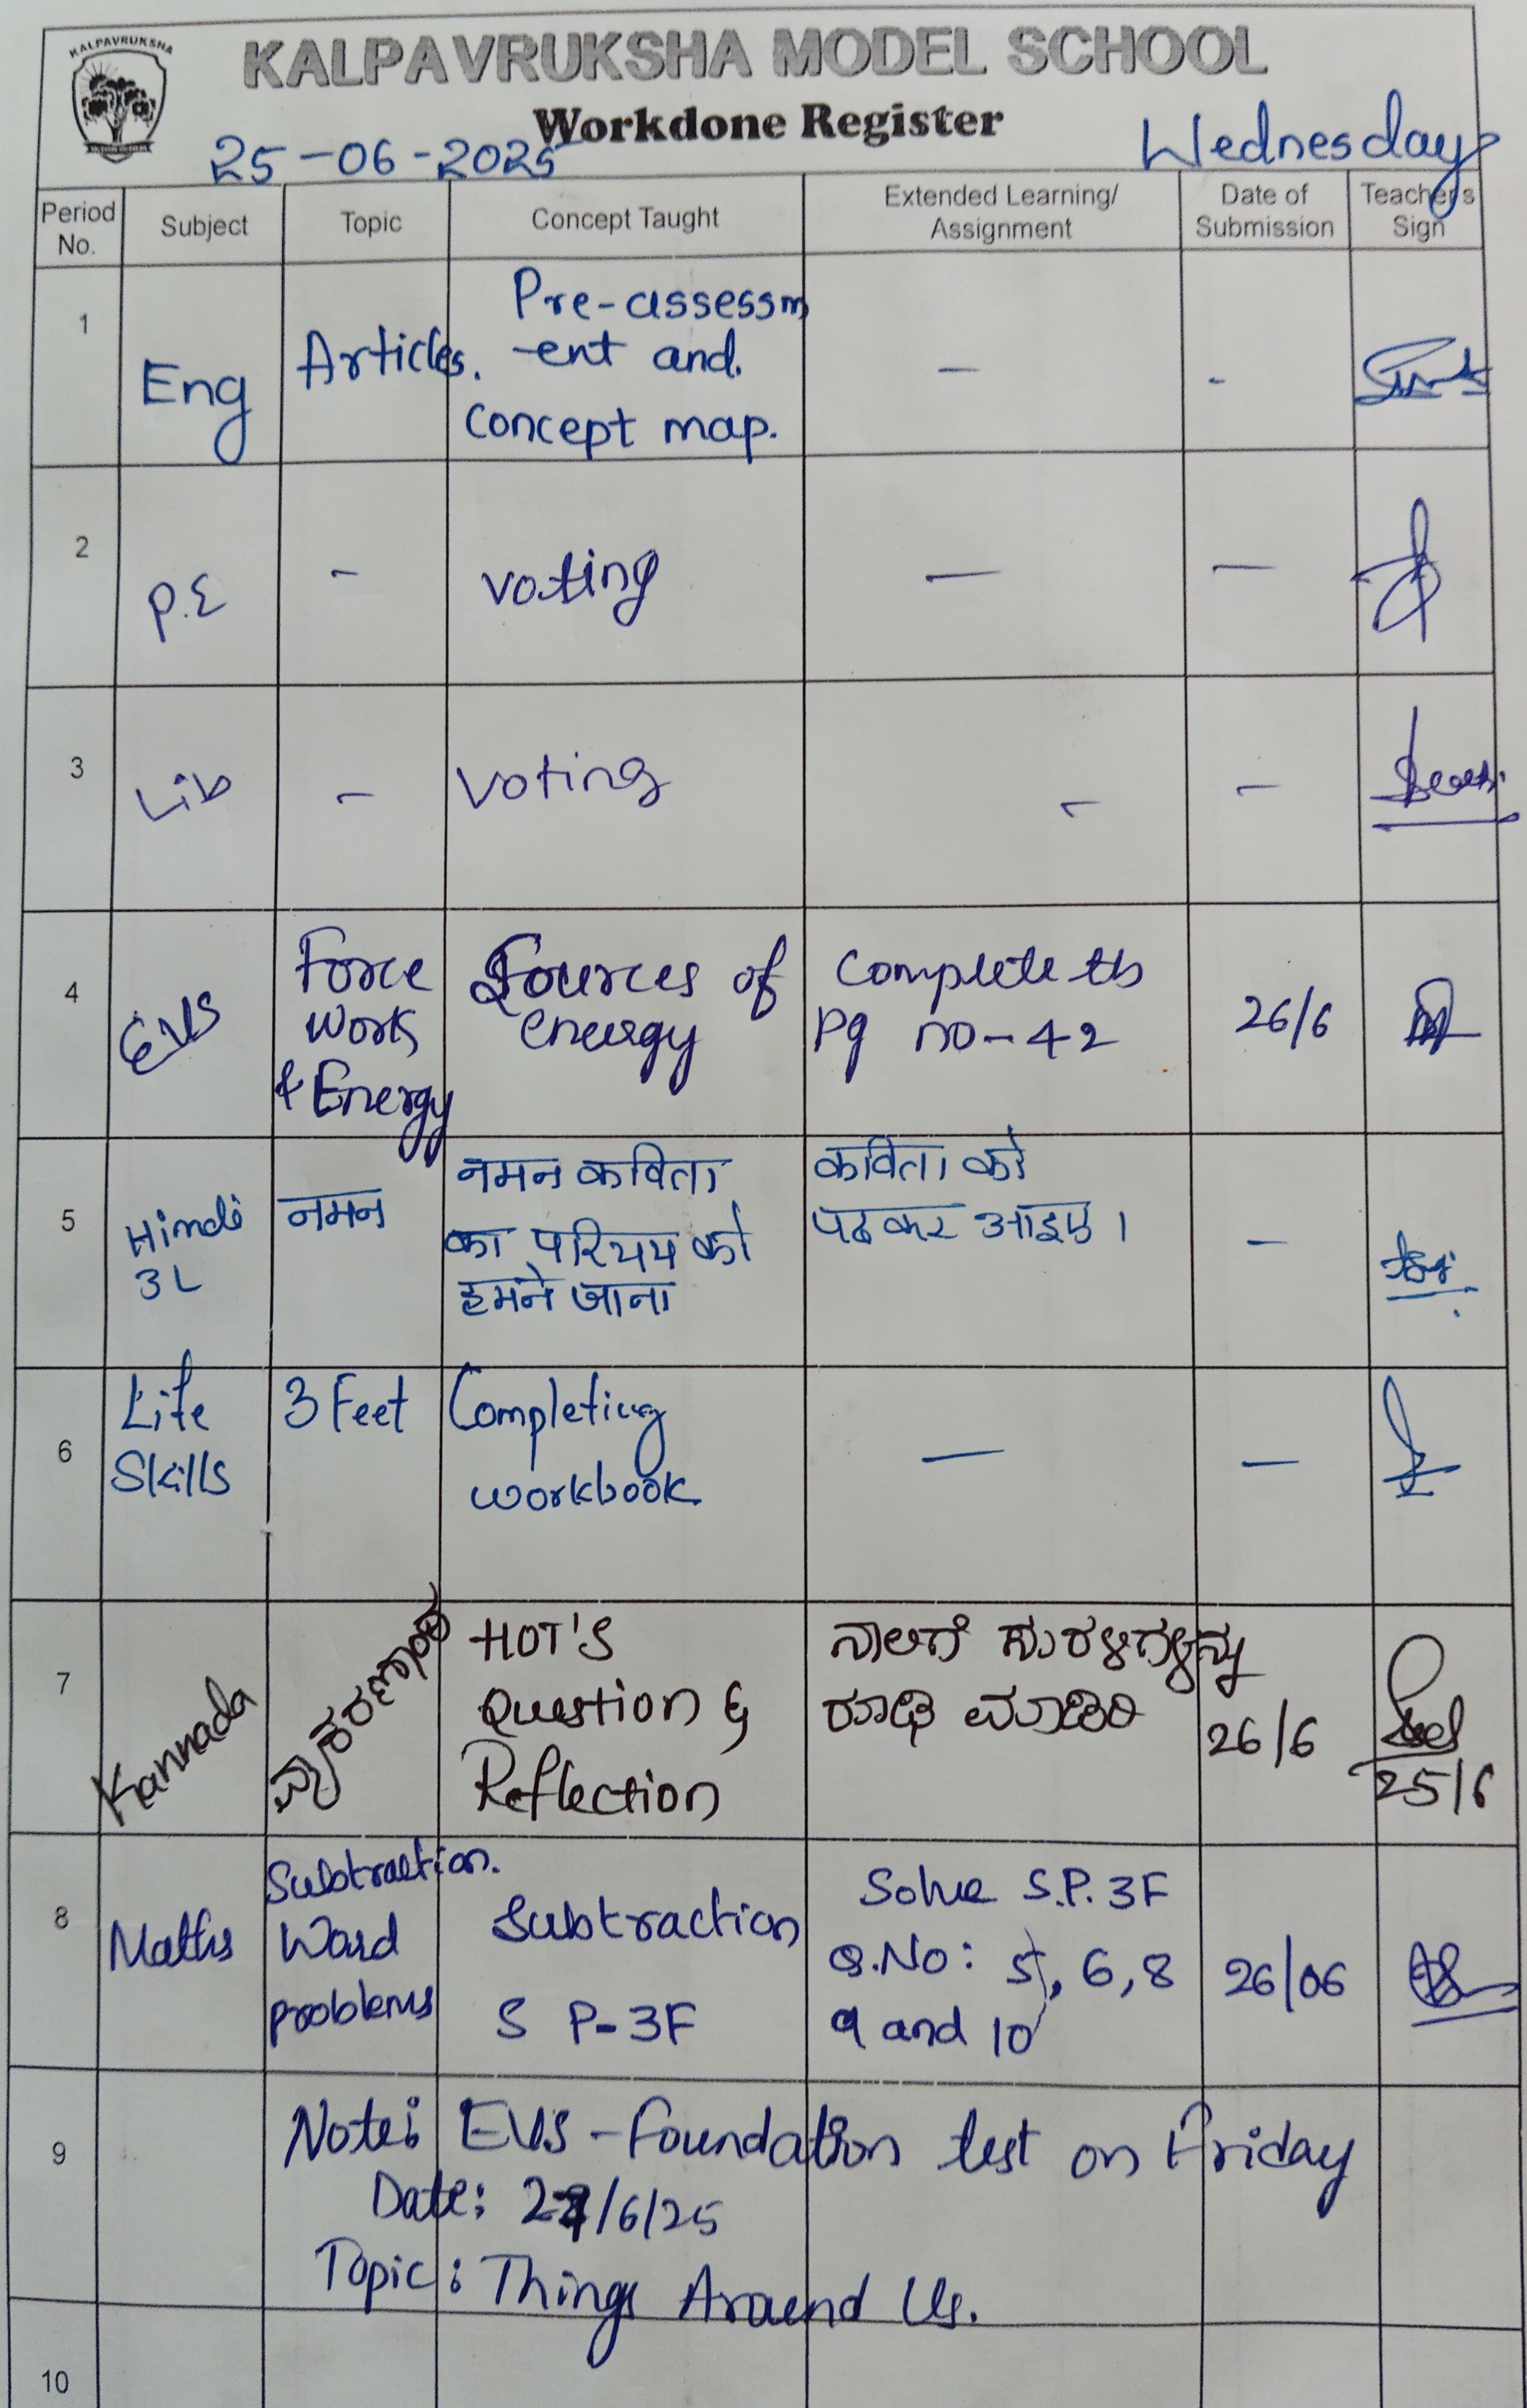 KALPAVRUKSHA
KALPAVRUKSHA MODEL SCHOOL
Workdone Register
25-06-2025
Wednesday
Period No.
Subject
Topic
Concept Taught
Extended Learning/ Assignment
Date of Submission
Teacher's Sign
1
Eng
Articles.
Pre-assessm
-ent and
Concept map.
-
-
2
P.E
-
voting
-
-
3
Lib
-
voting
-
-
4
EVS
Force
Work
& Energy
Sources of
energy
Complete tb
pg no-42
26/6
5
Hindi
3L
नमन
नमन कविता
का परिचय को
हमने जाना
कविता को
पढकर आइए।
-
6
Life
Skills
3 Feet
Completing
workbook
-
-
7
Kannada
HOT'S
Question &
Reflection
ನಾಲಿಗೆ ಸುರಳಿಗಳನ್ನು
ರೂಢಿ ಮಾಡಿರಿ
26/6
25/6
8
Maths
Subtraction.
Word
problems
Subtraction
S P-3F
Solve S.P. 3F
Q.No: 5, 6, 8
9 and 10
26/06
9
Note: EVS - Foundation test on Friday
Date: 27/6/25
Topic: Things Around Us.
10